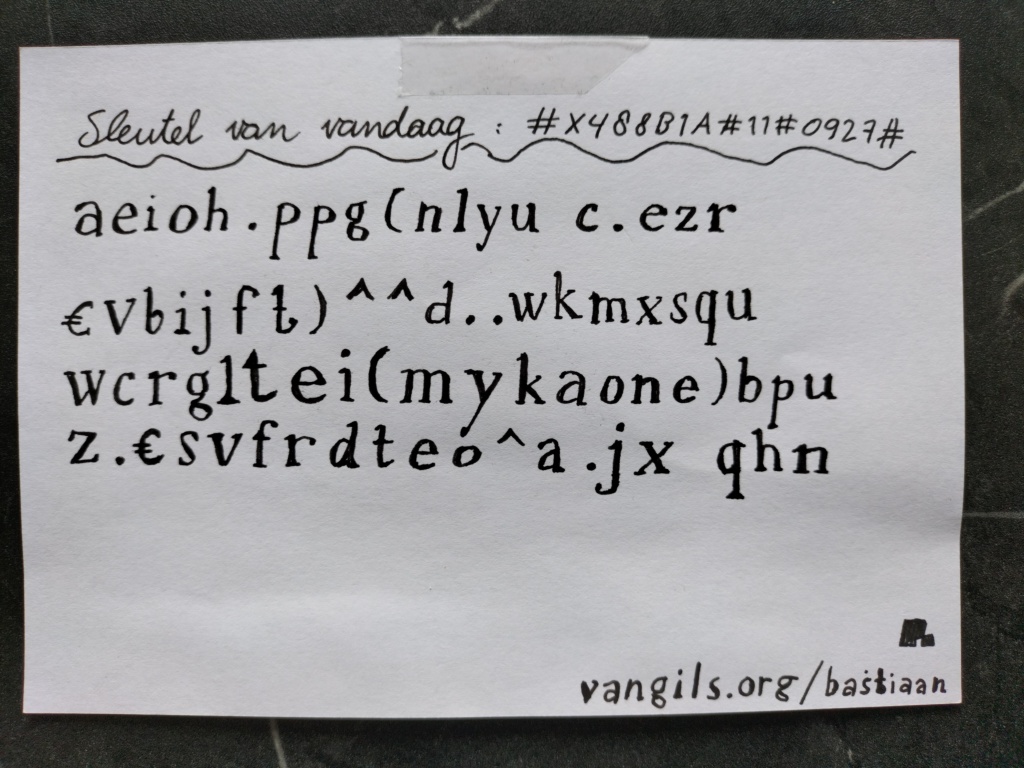 Sleutel van vandaag : #X488B1A#11#0927#
aeioh.ppg(nlyu c.ezr
€vbijft)^^d..wkmxsqu
wcrgltei(mykaone)bpu
z.€svfrdteo^a.jx qhn
vangils.org/bastiaan